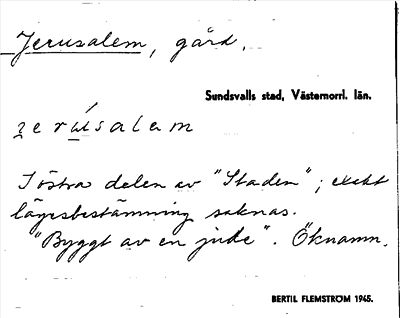 Jerusalem, gård.
Sundsvalls stad, Västernorrl. län.
jerúsalem
I östra delen av "Staden"; exakt
lägesbestämning saknas.
"Byggt av en jude". Öknamn.
BERTIL FLEMSTRÖM 1945.